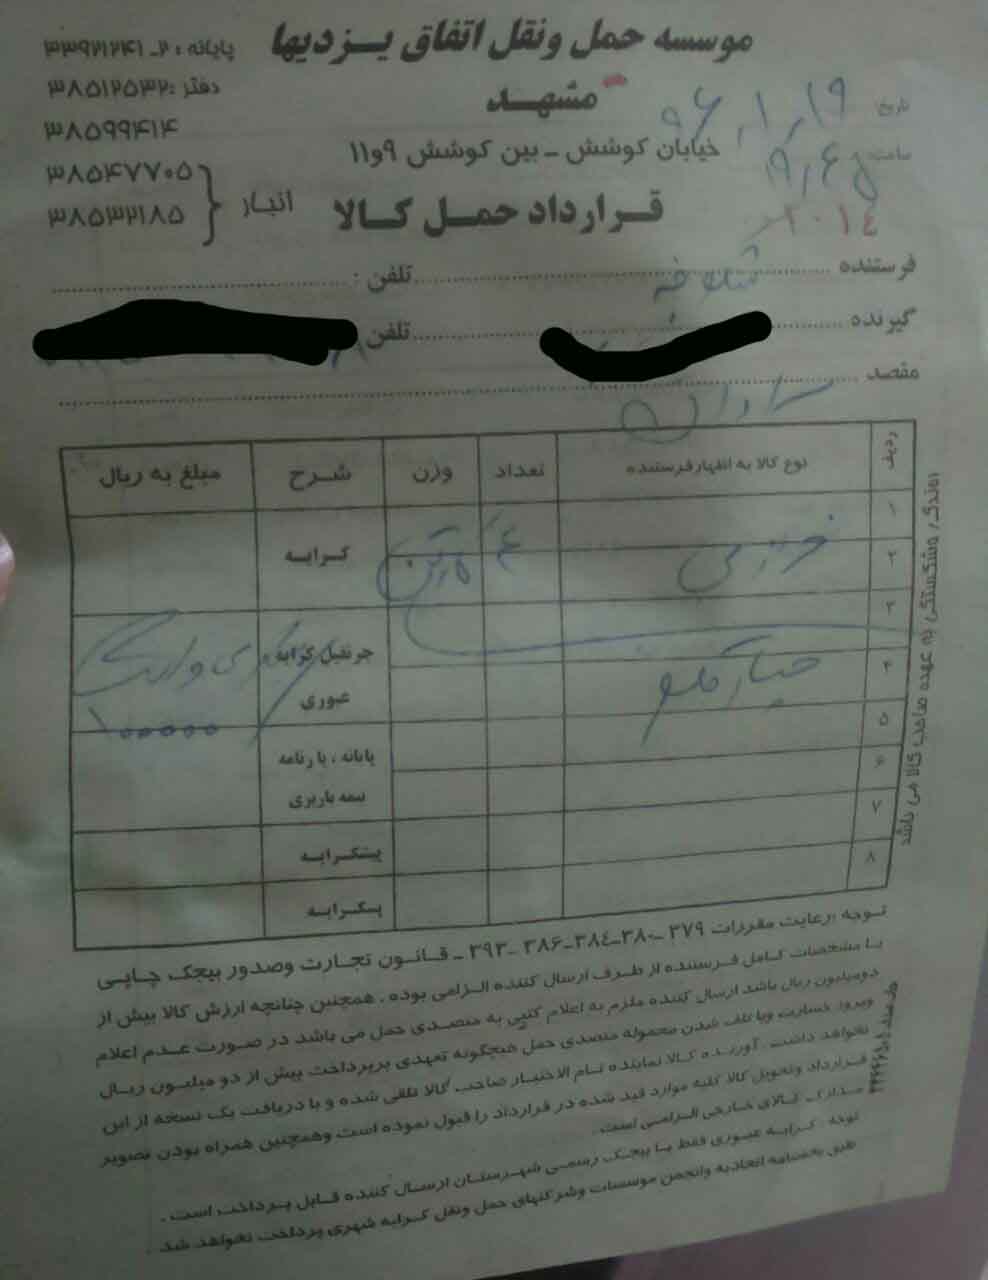 موسسه حمل ونقل اتفاق یـزدیها
مشهد
خیابان کوشش - بین کوشش ۹و۱۱
قرارداد حمل کالا
پایانه : ۲-۳۳۹۲۱۲۴۱
دفتر : ۳۸۵۱۲۵۳۲
۳۸۵۹۹۴۱۴
انبار { ۳۸۵۴۷۷۰۵
۳۸۵۳۲۱۸۵
تاریخ ۹۶/۱/۱۹
ساعت ۹/۴۵
۲۰۱۴
فرستنده تلفن :
گیرنده تلفن
مقصد
ردیف نوع کالا به اظهارفرستنده تعداد وزن شرح مبلغ به ریال
۱
۲ کرایه
۳
۴ جرثقیل کرایه
عبوری
۱۰۰۰۰۰
۵
۶ پایانه ، بارنامه
بیمه باربری
۷ پیشکرایه
۸ پسکرایه
توجه : رعایت مقررات ۳۷۹ -۳۸۰-۳۸٤-۳۸۶ -۳۹۳ - قـانـون تجـارت وصدور بیجک چـاپـی
بـا مشخصات کـامل فـرستنده از طـرف ارسال کننده الـزامی بوده . همچنین چنانچه ارزش کالا بیش از
دومیلیون ریال باشد ارسال کننده ملزم به اعلام کتبی به متصدی حمل می باشد در صورت عـدم اعلام
وبروز خسارت ویا تلف شدن محموله متصدی حمل هیچگونه تعهدی برپرداخت بیش از دو میلیون ریال
نخواهد داشت . آورنده کالا نماینده تـام الاختیار صاحب کالا تلقی شده و با دریافت یک نسخه از این
قرارداد وتحویل کالا کلیه موارد قید شده در قرارداد را قبول نموده است وهمچنین همراه بودن تصویر
مدارک کالای خارجی الزامی است .
توجه : کـرایـه عبوری فقط بـا بیجک رسمی شهـرستان ارسـال کننده قـابل پـرداخت است .
طبق بخشنامه اتحادیه وانجمن موسسات وشرکتهای حمل ونقل کرایه شهری پرداخت نخواهد شد
وشکستگی به عهده صاحب کالا می باشد